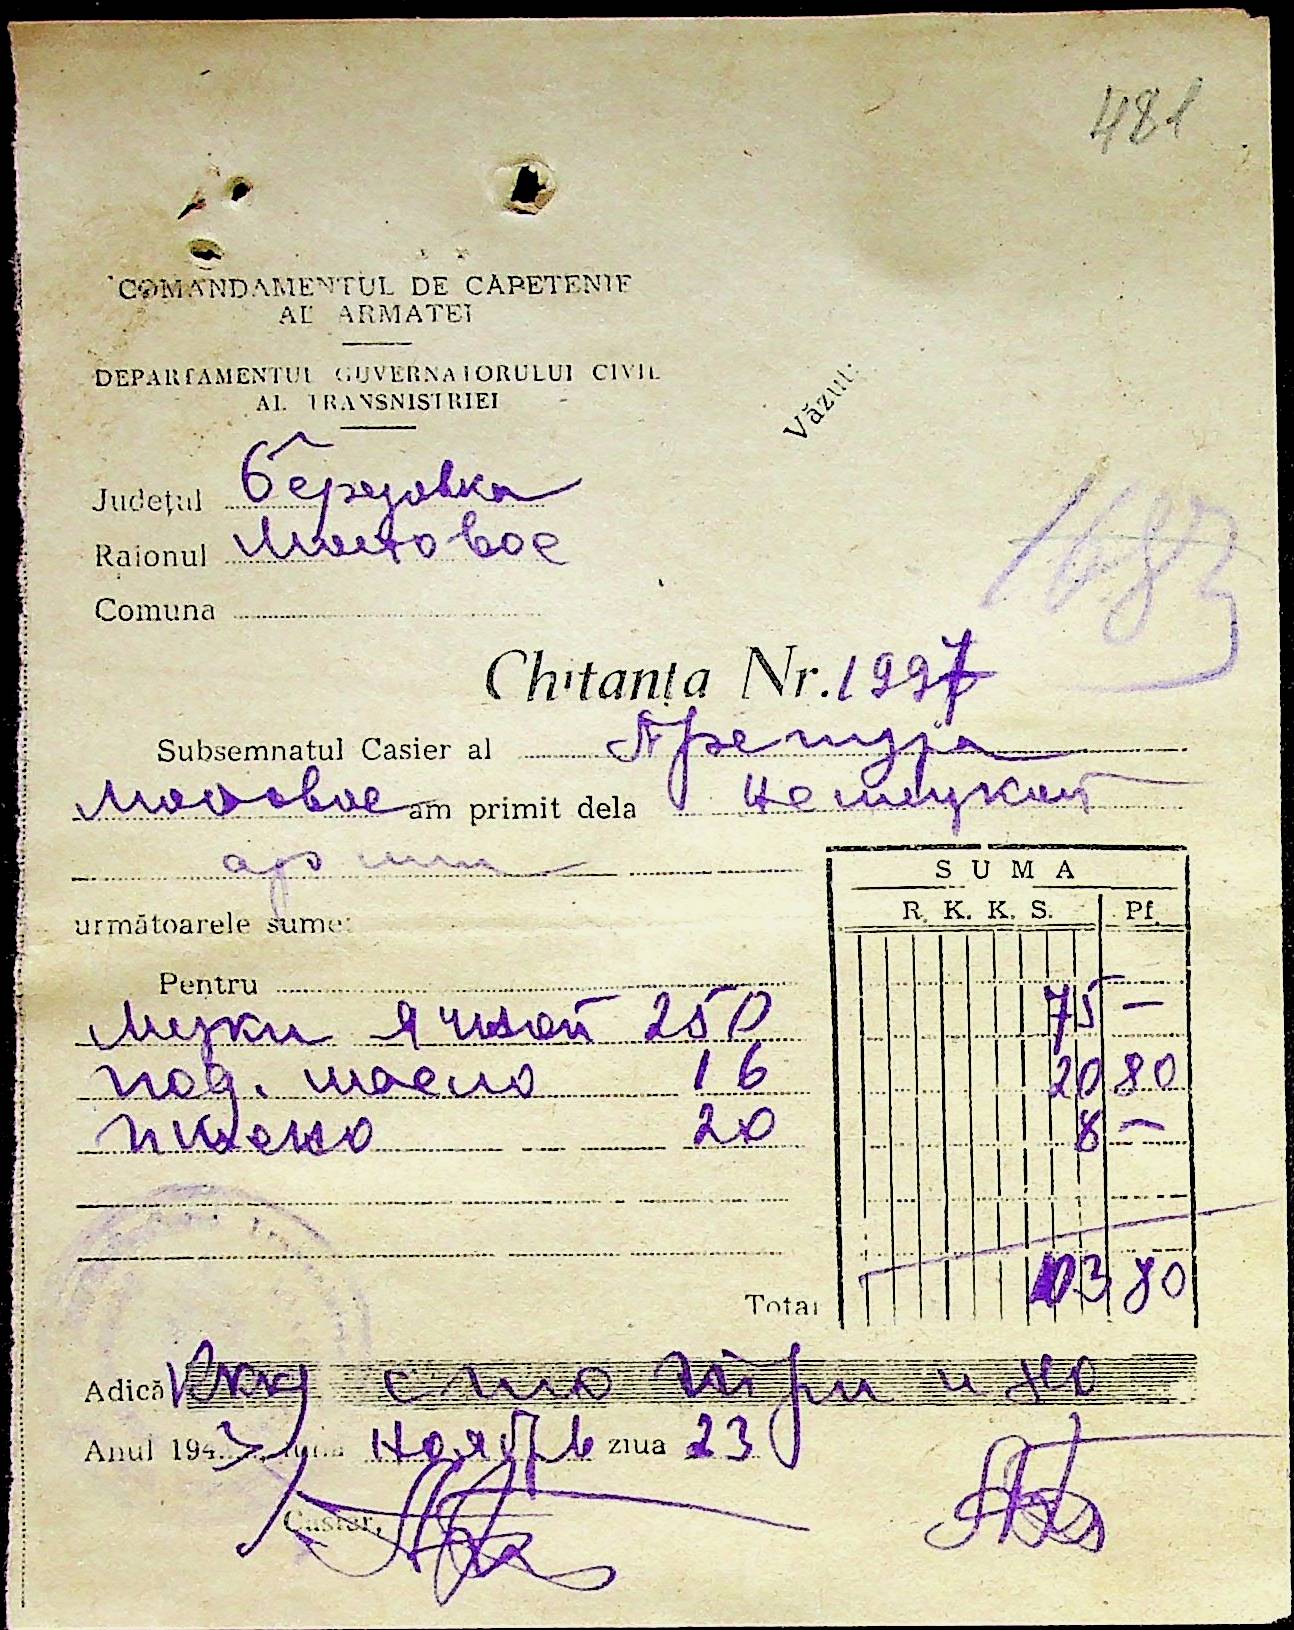 481
COMANDAMENTUL DE CAPETENIE
AL ARMATEI
DEPARTAMENTUL GUVERNATORULUI CIVIL
AL TRANSNISTRIEI
Văzut:
Județul Березовка
Raionul Мостовое
Comuna
Chitanța Nr. 1997
Subsemnatul Casier al Претура
Мостовое am primit dela Немецкой
арми
următoarele sume:
SUMA
R. K. K. S. Pf.
Pentru
Муки Ячной 250 75 —
под. масло 16 20 80
пшено 20 8 —
Total 103 80
Adică сто три и 80
Anul 1943 luna Ноябрь ziua 23
Casier,